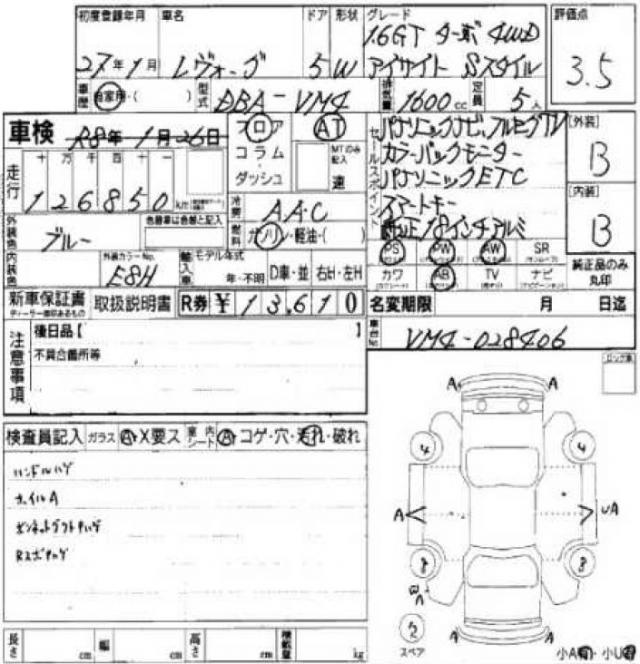 初度登録年月 車名 ドア 形状 グレード 評価点
27年1月 レヴォーグ 5 W 1.6GT ターボ 4WD
アイサイト Sスタイル
3.5
車歴 自家用・( ) 型式 DBA-VM4 排気量 1600cc 定員 5人
車検 R8年1月26日 フロア AT
コラム・ MTのみ記入
ダッシュ 速
走行 十 万 千 百 十 一
126850 km
セールスポイント
パナソニックナビ、フルセグTV
カラーバックモニター
パナソニックETC
スマートキー
純正18インチアルミ
[外装]
B
[内装]
B
外装色 ブルー 色替車は色替と記入
冷房 AAC
燃料 ガソリン・軽油・( )
内装色 外装カラーNo. E8H
輸入車 モデル年式 年・不明 D車・並 右H・左H
PS PW AW SR
カワ AB TV ナビ
純正品のみ丸印
新車保証書 取扱説明書 R券 ¥13,610
ディーラー捺印あるもの
名変期限 月 日迄
車台No. VM4-028406
注意事項
後日品【 】
不具合箇所等
検査員記入 ガラス A・X要ス 室内シート A・コゲ・穴・汚れ・破れ
ハンドルハゲ
ホイルA
ボンネットダクトハゲ
A A
4 4
A UA
8 8
A A
2
スペア
小A有・小U有
長さ cm 幅 cm 高さ cm 積載量 kg